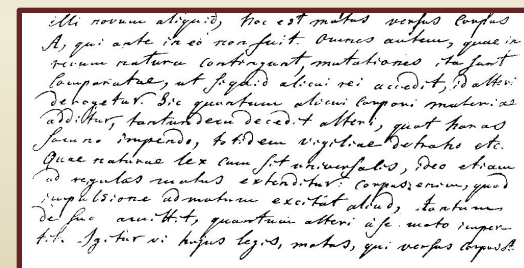 illi novum aliquid, hoc est motus versus corpus
A, qui ante in eo non fuit. Omnes autem, quae in
rerum natura contingunt, mutationes ita sunt
comparatae, ut si quid alicui rei accedit, id alteri
derogetur. Sic quantum alicui corpori materiae
additur, tantundem decedit alteri, quot horas
somno impendo, totidem vigiliae detraho etc.
Quae naturae lex cum sit universalis, ideo etiam
ad regulas motus extenditur: corpus enim, quod
impulsione ad motum excitat aliud, tantum
de suo amittit, quantum alteri a se moto imper-
tit. Igitur vi hujus legis, motus, qui versus corpus